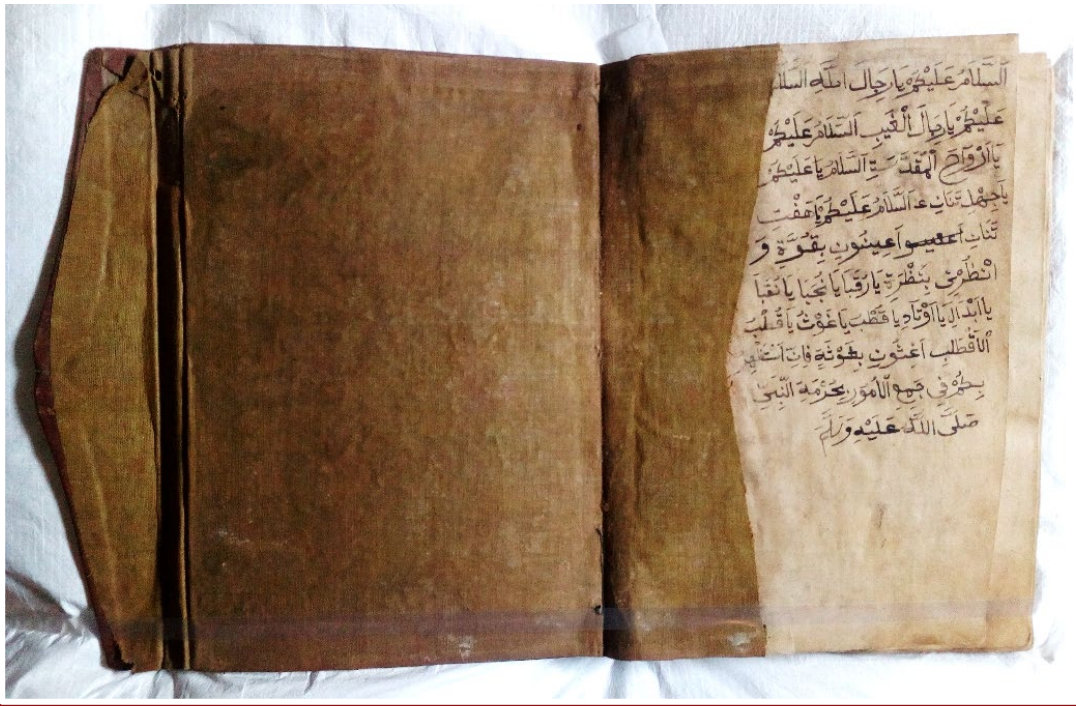 اَلسَّلَامُ عَلَيْكُمْ يَا رِجَالَ اللّٰهِ السَّلَا
عَلَيْكُمْ يَا رِجَالَ الْغَيْبِ اَلسَّلَامُ عَلَيْكُمْ
يَا اَرْوَاحَ الْمُقَدَّسَةِ اَلسَّلَامُ يَا عَلَيْكُمْ
يَا چِهْلِ تَنَانِ اَلسَّلَامُ عَلَيْكُمْ يَا هَفْت
تَنَانِ اَعِينُونِ بِقُوَّةِ وَ
انْظُرْنِي بِنَظْرَةِ يَا رُقَبَا يَا نُجَبَا يَا نُقَبَا
يَا اَبْدَالِ يَا اَوْتَادِ يَا قُطْبَ يَا غَوْثُ يَا قُطْبُ
الْاَقْطَابِ اَغِثُونِ بِغَوْثَةِ فَاِنِّ
بِكُمْ فِي جَمِعِ الْاُمُورِ بِحُرْمَةِ النَّبِيِّ
صَلَّى اللّٰهُ عَلَيْهِ وَسَلَّمَ